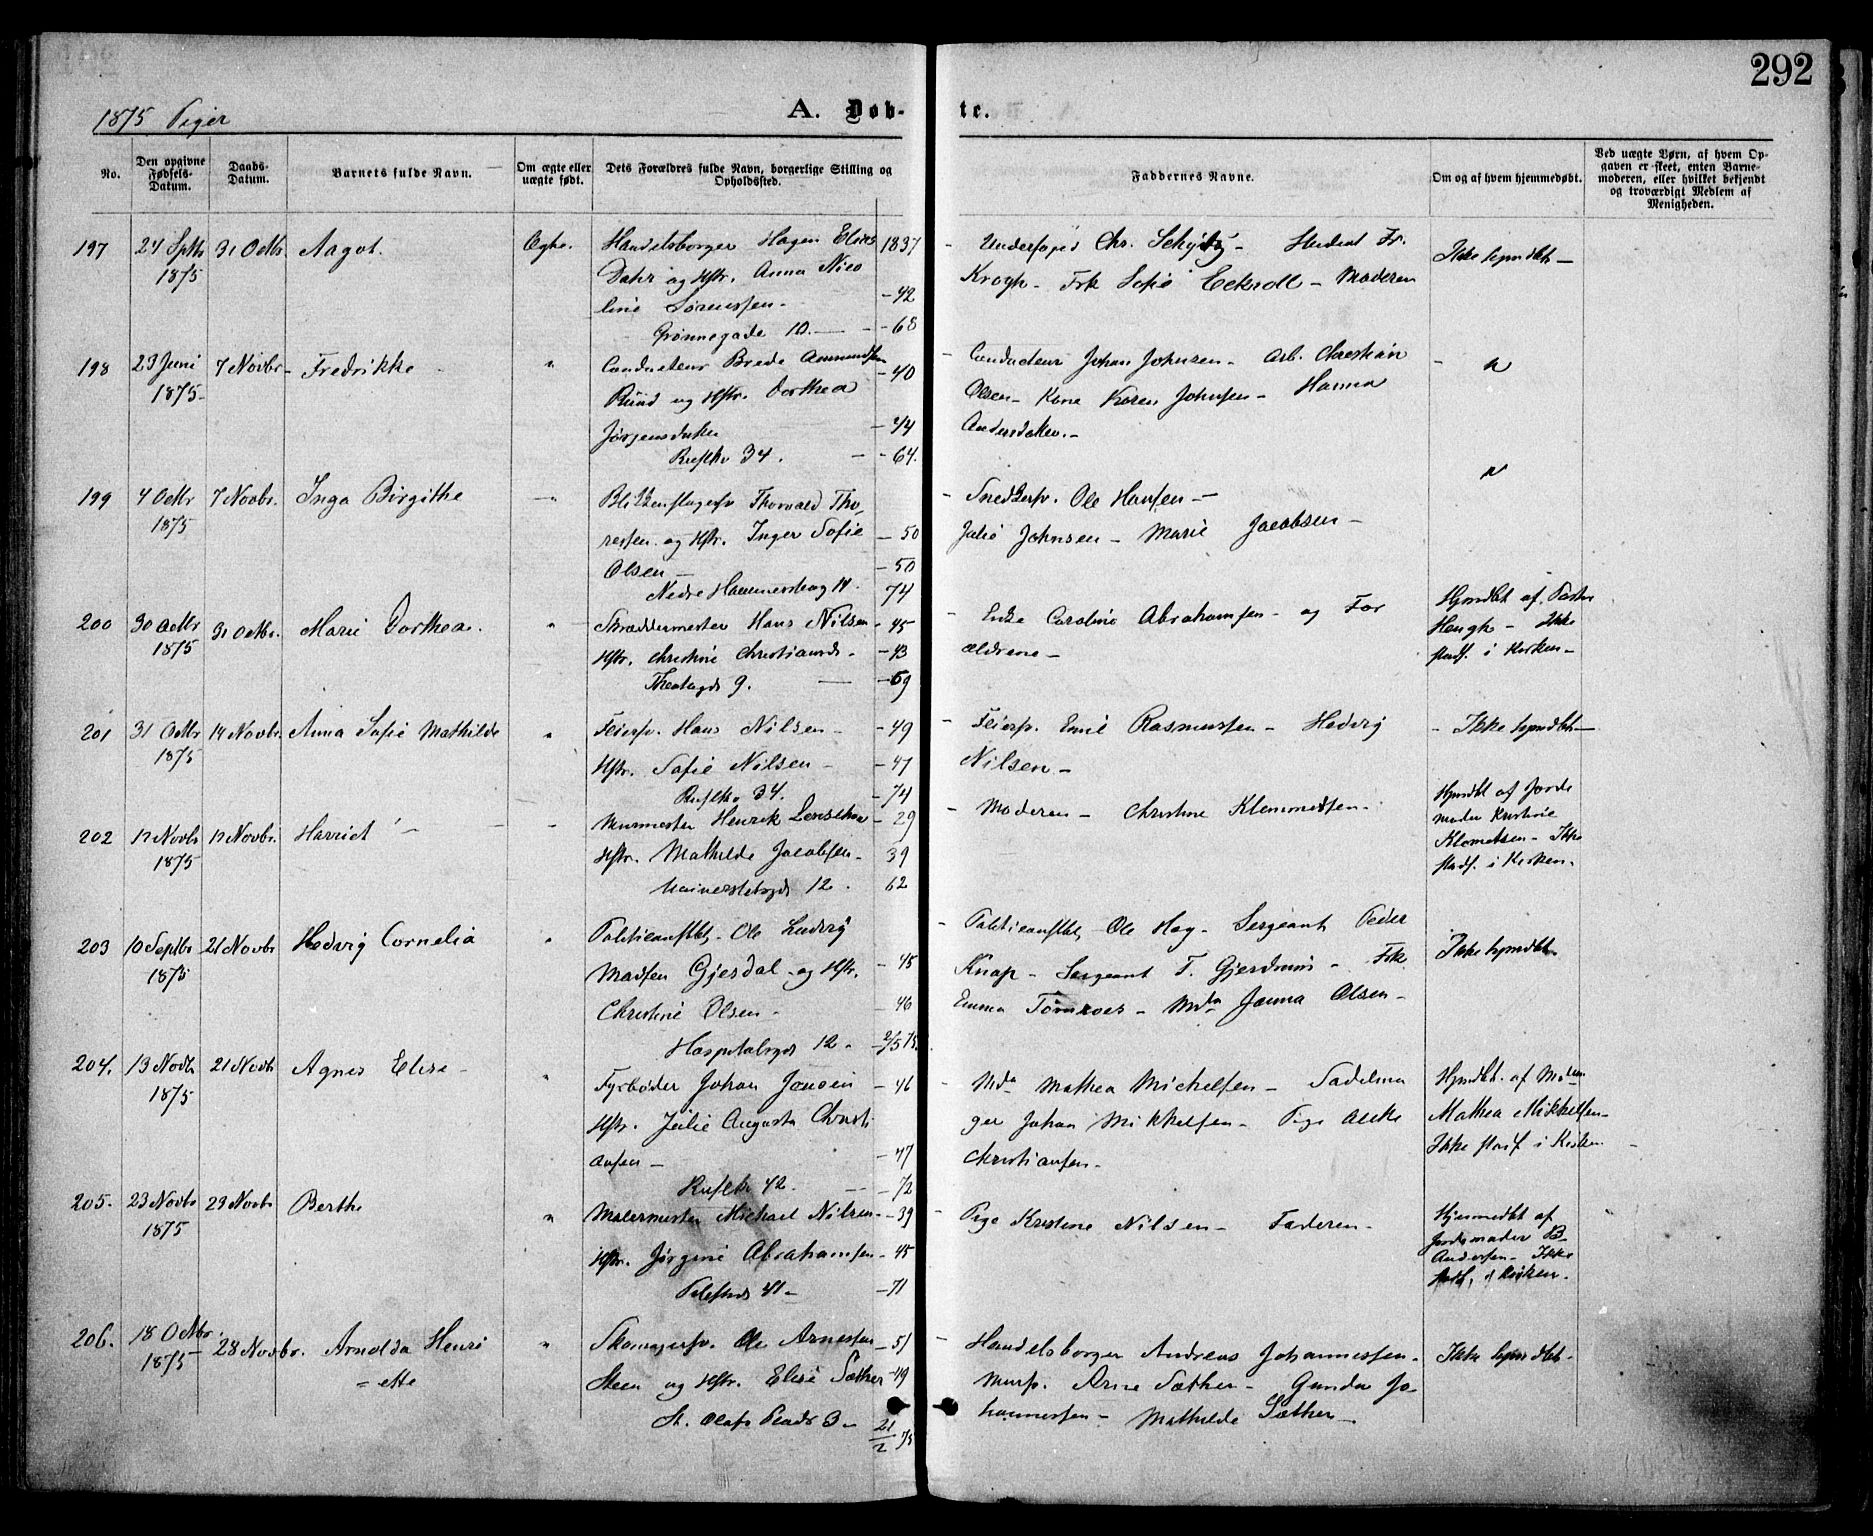 292
1875 Piger
A. Døb-
te.
No.
Den opgivne Fødsels-Datum.
Daabs-Datum.
Barnets fulde Navn.
Om ægte eller uægte født.
Dets Forældres fulde Navn, borgerlige Stilling og Opholdssted.
Faddernes Navne.
Om og af hvem hjemmedøbt.
Ved uægte Børn, af hvem Op-
gaven er skeet, enten Barne-
moderen, eller hvilket bekjendt
og troværdigt Medlem af
Menigheden.
197 24 Sptbr 31 Octbr. Aagot. Ægte. Handelsborger Hagen Elias 1837 - Chr. Schøtz - Student Fr. Ikke hjmdbt -
1875 Dahr og Hstr. Anna Nico Krogh - Frk Sofie Eckroll - Moderen
line Sørenssen - - 42
Grønnegade 10. - - 68
198 23 Juni 7 Novbr - Fredrikke " Conducteur Brede Amundsen - 40 - Conducteur Johan Johnsen - Arb. Christian - "
1875 - Ruud og Hstr. Dorthea Olsen - Kone Karen Johnsen - Hanna
Jørgensdatter - 44 Andersdatter. -
Rusltv 34. - - 64.
199 4 Octbr 7 Novbr. Inga Birgithe - " Blikkenslagersv Thorvald Tho- - Snedkersv. Ole Hansen - "
1875 ressen og Hstr. Inger Sofie - 50 Julie Johnsen - Marie Jacobsen -
Olsen - - 50
Nedre Hammersborg 14. 74
200 30 Octbr 31 Octbr. Marie Dorthea. " Skræddermester Hans Nilsen - 45 - Enke Caroline Abrahamsen - og For Hjmdbt af Pastor
1875 Hstr. Christine Christiansd. - - 43 ældrene - Haugh - Ikke
Theatergd 9. - - 69 stadf. i Kirken -
201 31 Octbr 14 Novbr. Anna Sofie Mathilde " Feiersv. Hans Nilsen - - 49 - Feiersv. Emil Rasmussen - Hedvig - Ikke hjmdbt -
1875 Hstr. Sofie Nilsen - - 47 Nilsen -
Rusltv 34. - 74
202 12 Novbr 12 Novbr. Harriet - - " Murmester Henrik - 29 - Moderen - Christine Klemmetsen - Hjmdbt af Jorde
1875 Hstr. Mathilde Jacobsen - 39 moder Kristine
Universitetsgd 12. 62 Klemetsen - Ikke
stadf. i Kirken.
203 10 Septbr 21 Novbr Hedvig Cornelia " Politiconstbl. Ole Ludvig - Politiconstbl, Ole Hag - Sergeant Peder Ikke hjmdbt
1875 Madsen Gjesdal - og Hstr. - 45 Knap - Sergeant T. Gjerdrum - Frk
Christine Olsen - - 46 Emma - Mda Janna Olsen -
Hospitalsgd 12 - 2/5 75.
204. 13 Novbr 21 Novbr Agnes Elise - " Fyrbøder Johan Jansen - 46 - Mda Mathea Michelsen - Sadelma Hjmdbt. af Madam
1875 Hstr. Julie Augusta Christi ger Johan Mikkelsen - Pige Mathea Mikkelsen -
ansen - - 47 Christiansen - Ikke stadf i Kirken -
Rusltv 42. - - 72
205. 23 Novbr 29 Novbr Berthe " Malermester Michael Nilsen - - 39 - Pige Kristine Nilsen - Faderen - Hjemmedbt af
1875 Hstr. Jørgine Abrahamsen - 45 Jordemoder B.
Pilestræd 41 - - 71 Andersen - Ikke
stadf. i Kirken.
206. 18 Octbr. 28 Novbr. Arnolda Henri " Skomagersv. Ole Arnessen - 51 - Handelsborger Andreas Johannessen - Ikke hjmdbt -
1875 = ette Steen og Hstr. Elise Sæther - 49 Mursv. Arne Sæther - Gunda Jo-
St. Olafs Plads 3 - 21/2 75 hannessen - Mathilde Sæther -